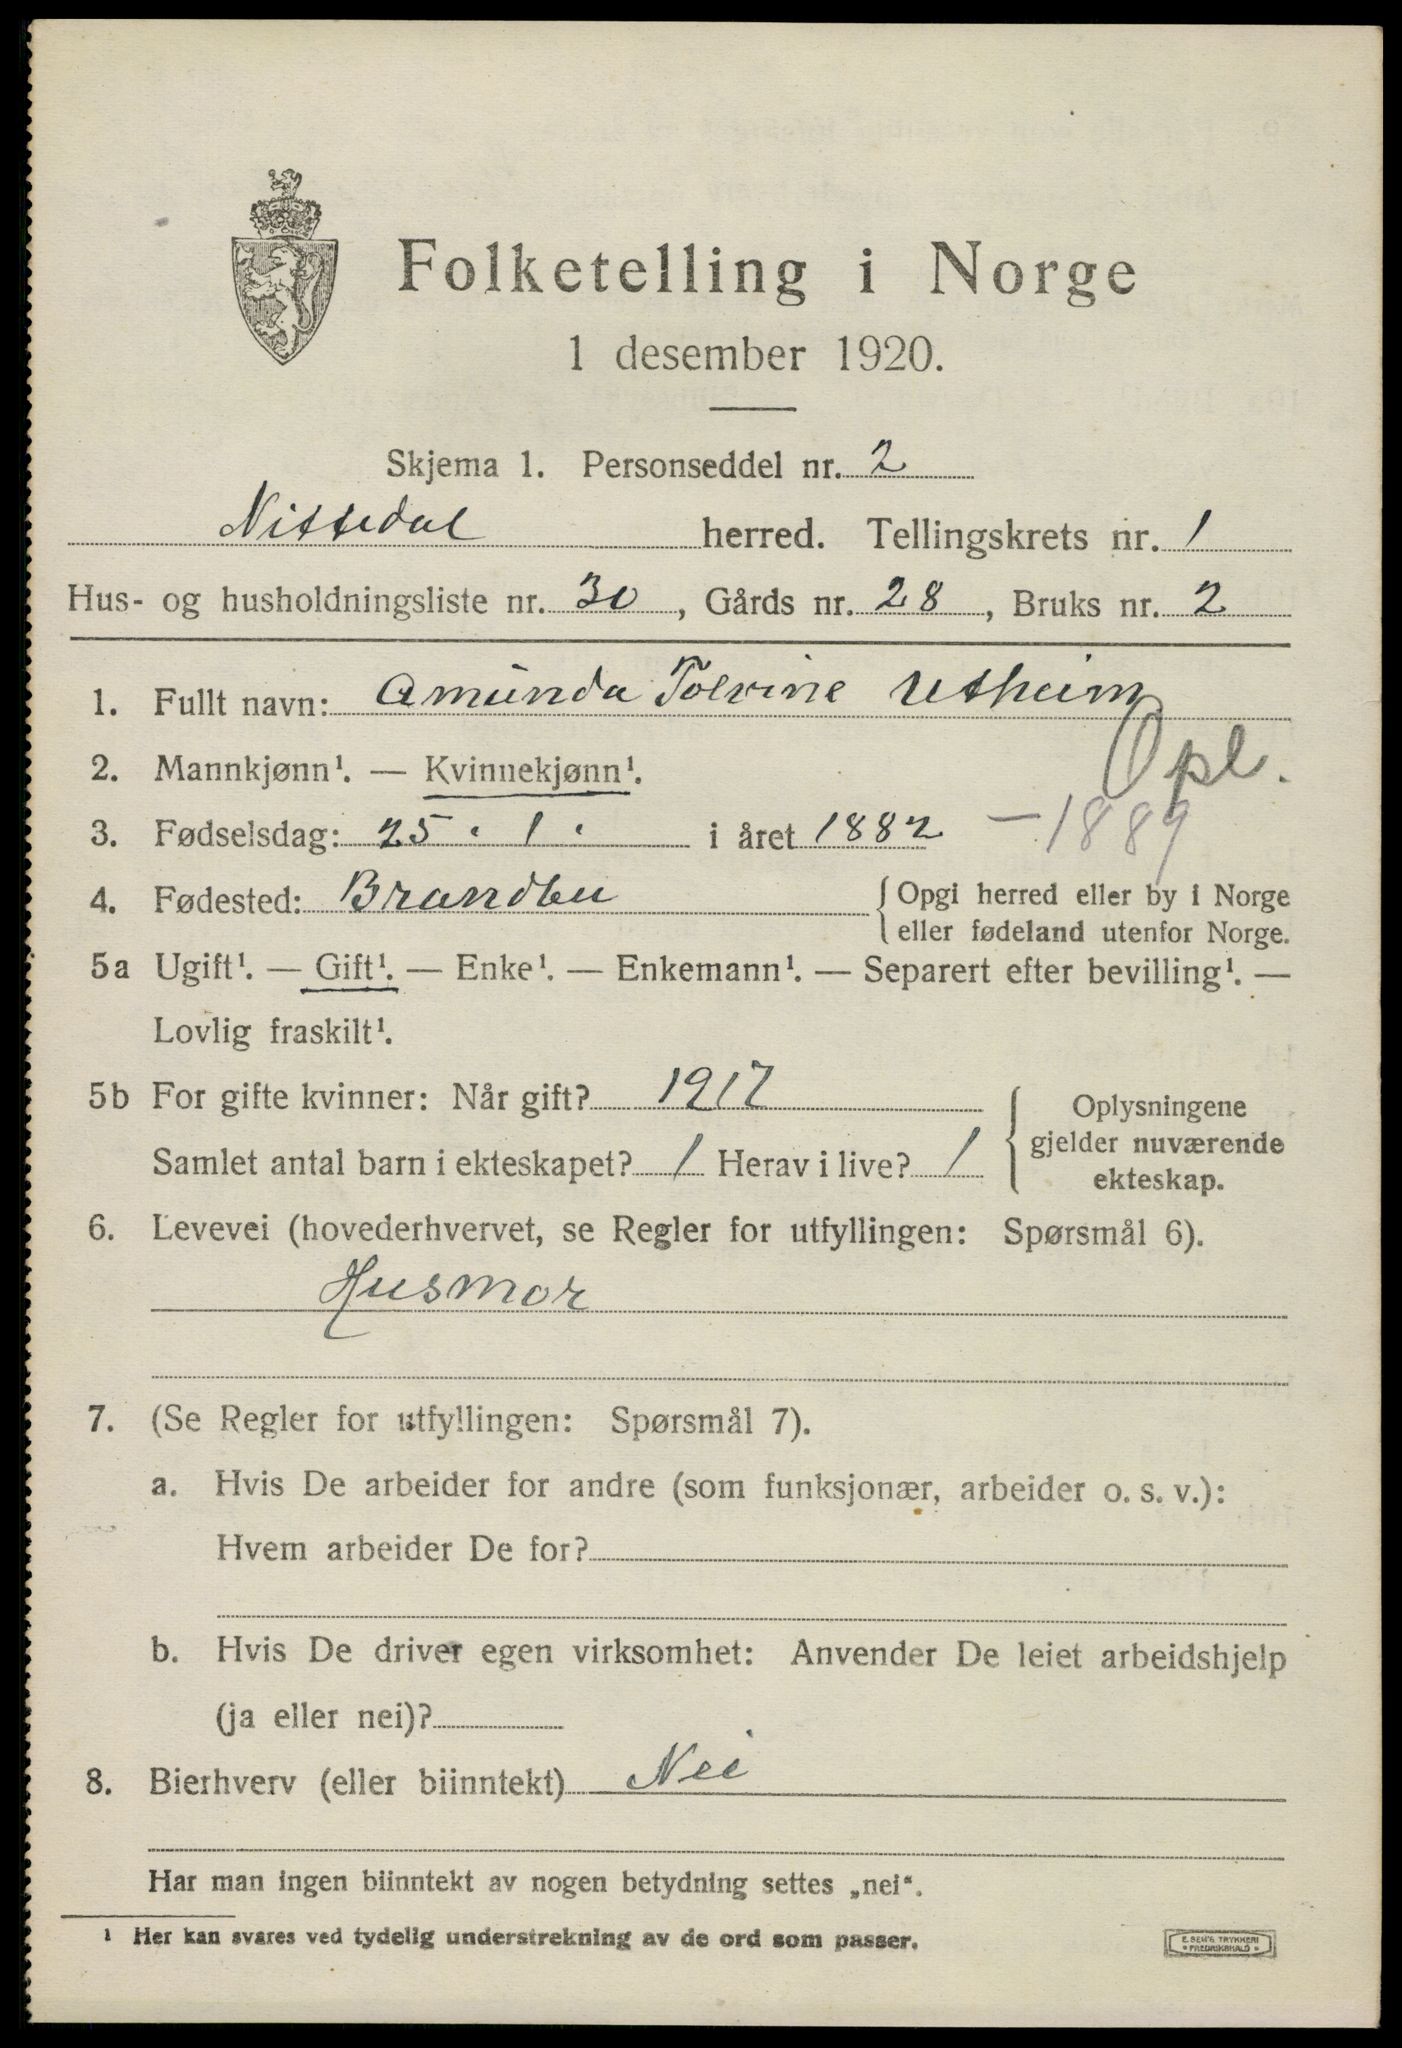 Folketelling i Norge
1 desember 1920.
Skjema 1. Personseddel nr. 2
Nittedal herred. Tellingskrets nr. 1
Hus- og husholdningsliste nr. 30, Gårds nr. 28, Bruks nr. 2
1. Fullt navn: Amunda Tolvine Utheim
Opl.
2. Mannkjønn¹. — Kvinnekjønn¹.
3. Fødselsdag: 25. 1. i året 1882 — 1889
4. Fødested: Brandbu { Opgi herred eller by i Norge
eller fødeland utenfor Norge.
5a Ugift¹. — Gift¹. — Enke¹. — Enkemann¹. — Separert efter bevilling¹. —
Lovlig fraskilt¹.
5b For gifte kvinner: Når gift? 1917
Samlet antal barn i ekteskapet? 1 Herav i live? 1
Oplysningene
gjelder nuværende
ekteskap.
6. Levevei (hovederhvervet, se Regler for utfyllingen: Spørsmål 6).
Husmor
7. (Se Regler for utfyllingen: Spørsmål 7).
a. Hvis De arbeider for andre (som funksjonær, arbeider o. s. v.):
Hvem arbeider De for?
b. Hvis De driver egen virksomhet: Anvender De leiet arbeidshjelp
(ja eller nei)?
8. Bierhverv (eller biinntekt) Nei
Har man ingen biinntekt av nogen betydning settes „nei“.
¹ Her kan svares ved tydelig understrekning av de ord som passer.
E. SEM'S TRYKKERI
FREDRIKSHALD